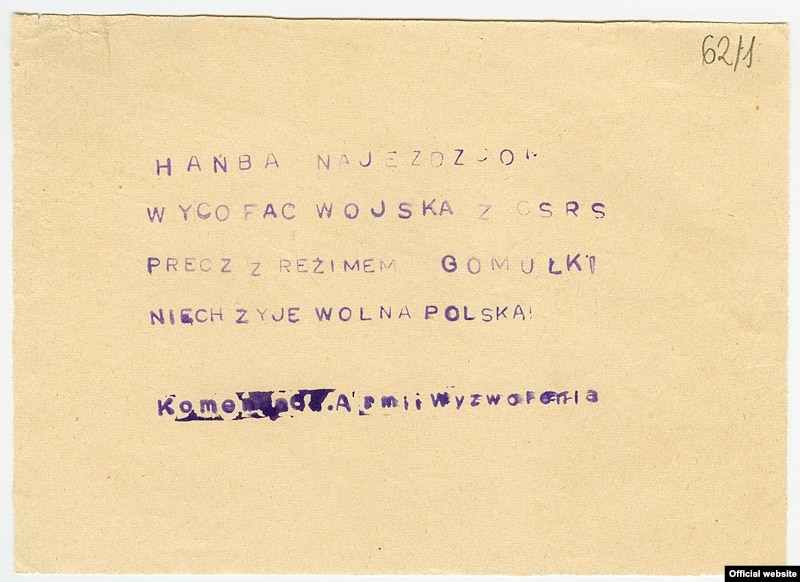 62/1
HAŃBA NAJEZDZCOM
WYCOFAC WOJSKA Z CSRS
PRECZ Z REŻIMEM GOMUŁKI
NIECH ZYJE WOLNA POLSKA!
Armii Wyzwolenia
Official website